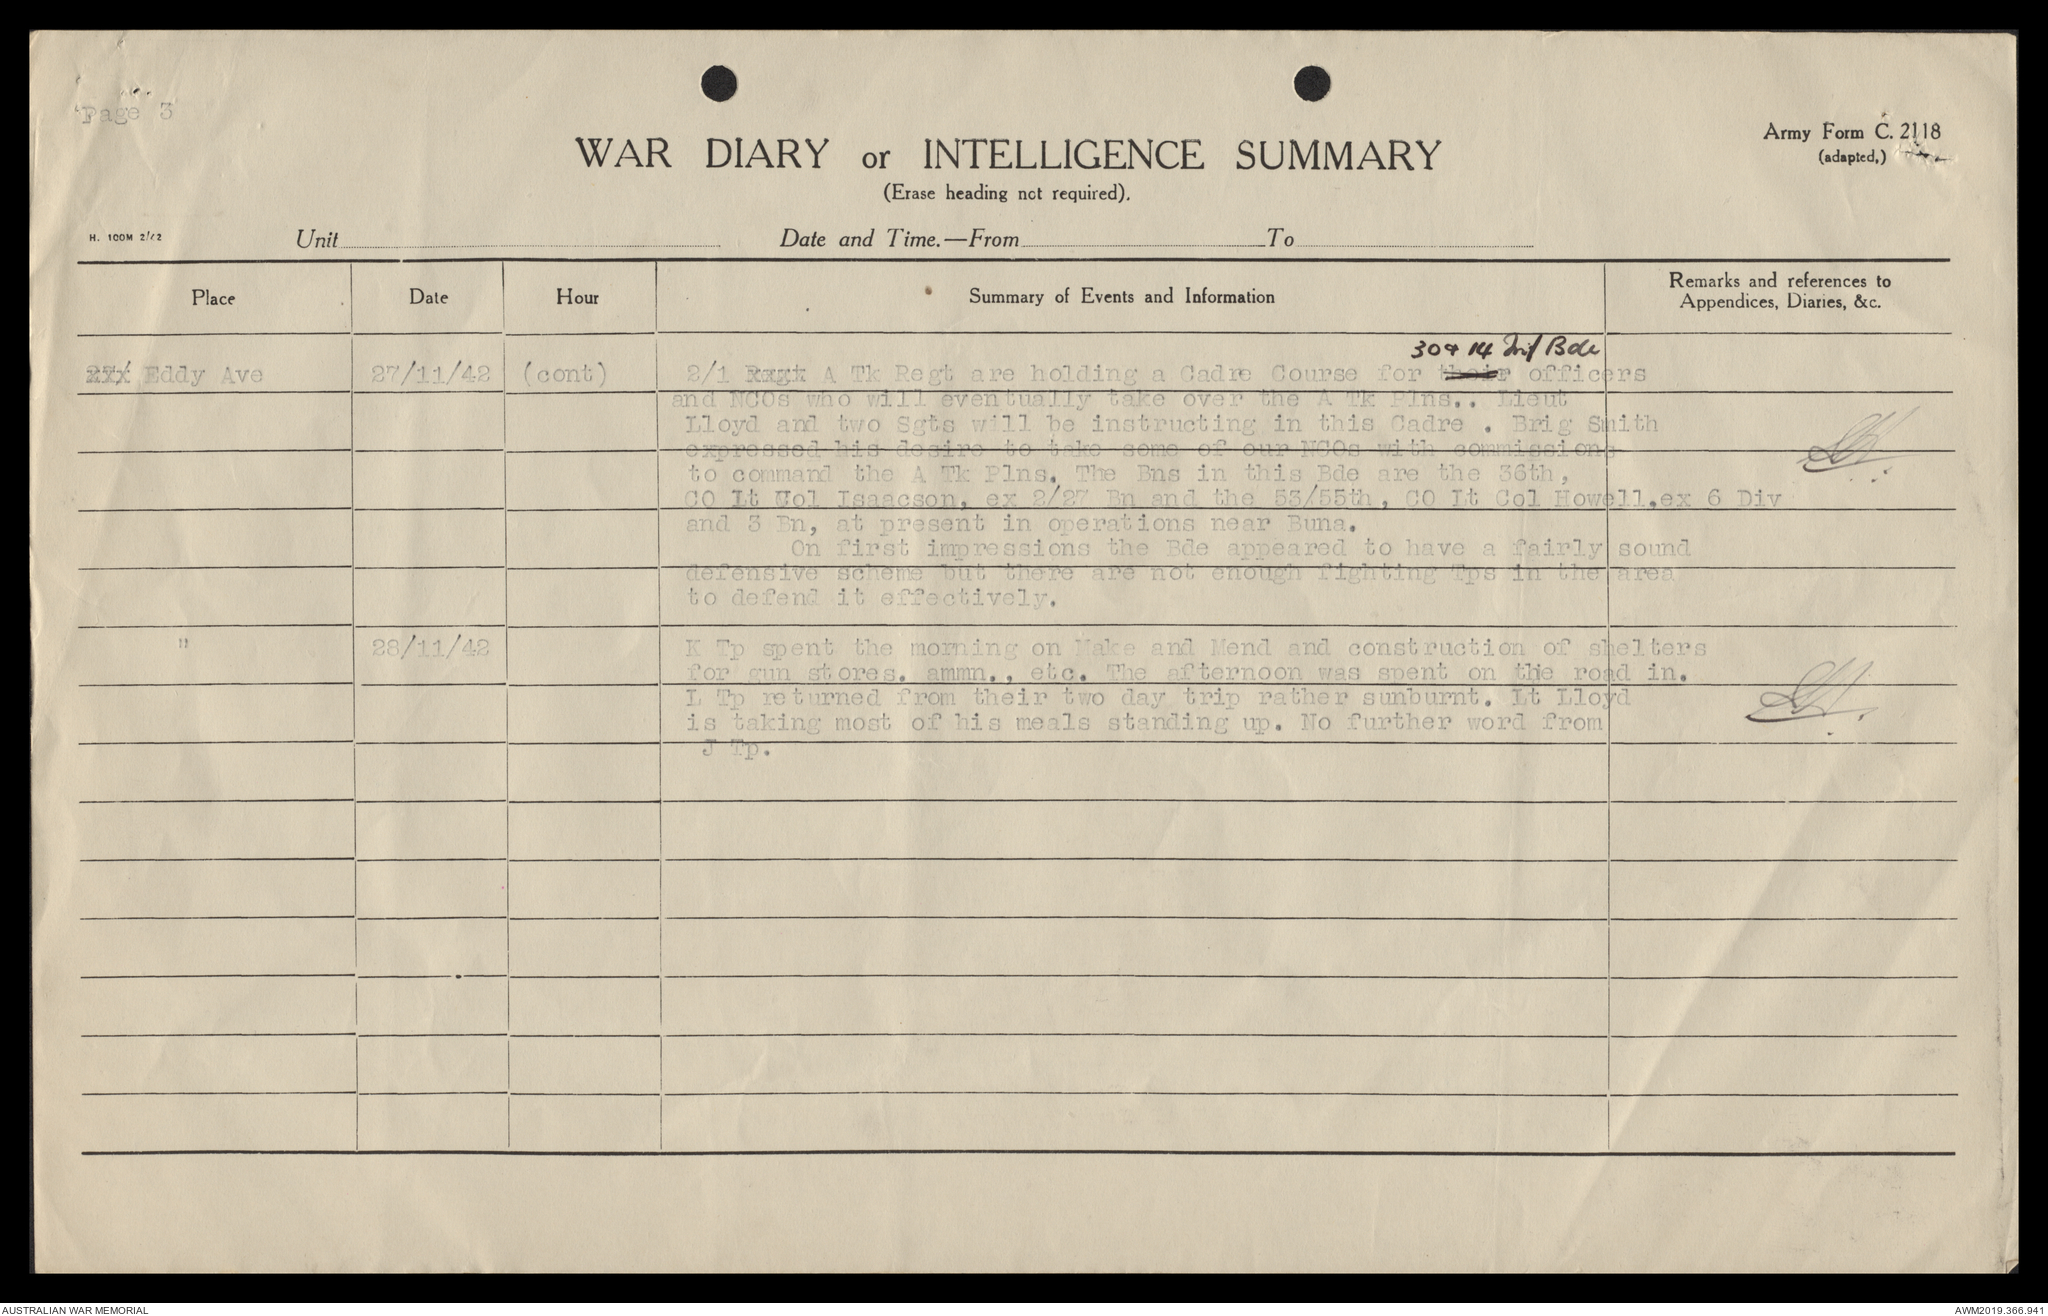 Page 3
Army Form C. 2118
(adapted,)
WAR DIARY or INTELLIGENCE SUMMARY
(Erase heading not required).
H. 100M 2/42
Unit
Date and Time.—From
To
Place
Date
Hour
Summary of Events and Information
Remarks and references to
Appendices, Diaries, &c.
30 & 14 Inf Bde
Eddy Ave 27/11/42 (cont) 2/1 Regt A Tk Regt are holding a Cadre Course for their officers
and NCOs who will eventually take over the A Tk Plns.. Lieut
Lloyd and two Sgts will be instructing in this Cadre . Brig Smith
expressed his desire to take some of our NCOs with commissions
to command the A Tk Plns. The Bns in this Bde are the 36th,
CO Lt Col Isaacson, ex 2/27 Bn and the 53/55th, CO Lt Col Howell,ex 6 Div
and 3 Bn, at present in operations near Buna.
On first impressions the Bde appeared to have a fairly sound
defensive scheme but there are not enough fighting Tps in the area
to defend it effectively.
" 28/11/42 K Tp spent the morning on Make and Mend and construction of shelters
for gun stores, ammn., etc. The afternoon was spent on the road in.
L Tp returned from their two day trip rather sunburnt. Lt Lloyd
is taking most of his meals standing up. No further word from
J Tp.
AUSTRALIAN WAR MEMORIAL
AWM2019.366.941